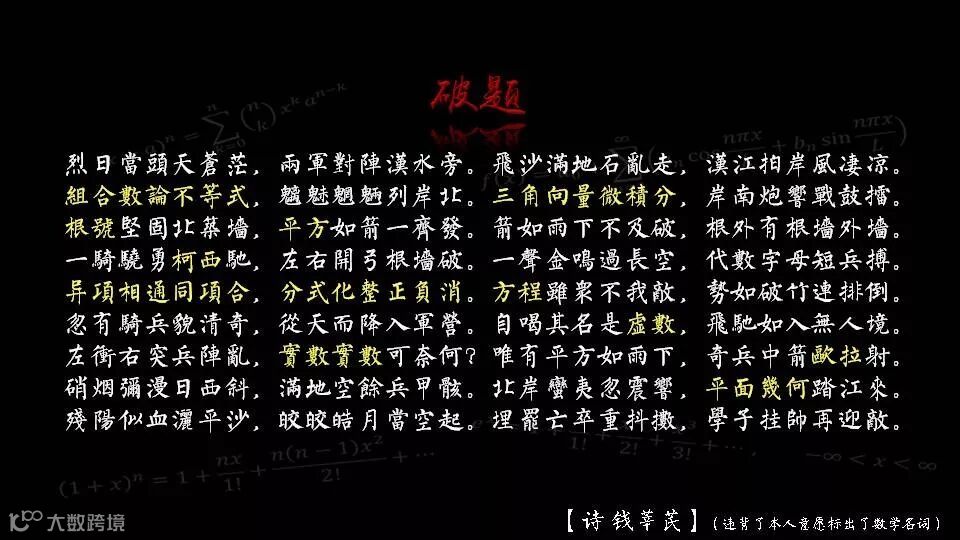 破題
烈日當頭天蒼茫，兩軍對陣漢水旁。飛沙滿地石亂走，漢江拍岸風凄凉。
組合數論不等式，魑魅魍魎列岸北。三角向量微積分，岸南炮響戰鼓擂。
根號堅固北築墻，平方如箭一齊發。箭如雨下不及破，根外有根墻外墻。
一騎驍勇柯西馳，左右開弓根墻破。一聲金鳴過長空，代數字母短兵搏。
异項相通同項合，分式化整正負消。方程雖衆不我敵，勢如破竹連排倒。
忽有騎兵貌清奇，從天而降入軍營。自喝其名是虛數，飛馳如入無人境。
左衝右突兵陣亂，實數實數可奈何？唯有平方如雨下，奇兵中箭歐拉射。
硝烟彌漫日西斜，滿地空餘兵甲骸。北岸蠻夷忽震響，平面幾何踏江來。
殘陽似血灑平沙，皎皎皓月當空起。埋罷亡卒重抖擻，學子挂帥再迎敵。
(1+x)^n = 1 + nx/1! + n(n-1)x^2/2! + …
-∞ < x < ∞
【诗 钱莘芪】（违背了本人意愿标出了数学名词）
大数跨境